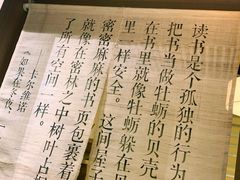 读书是个孤独的行为
把书当做牡蛎的贝壳
在书里就像牡蛎躲在贝
里一样安全。这间屋子
密密麻麻的书页包裹着
就像在密林之中树叶占
了所有空间一样。
卡尔维诺